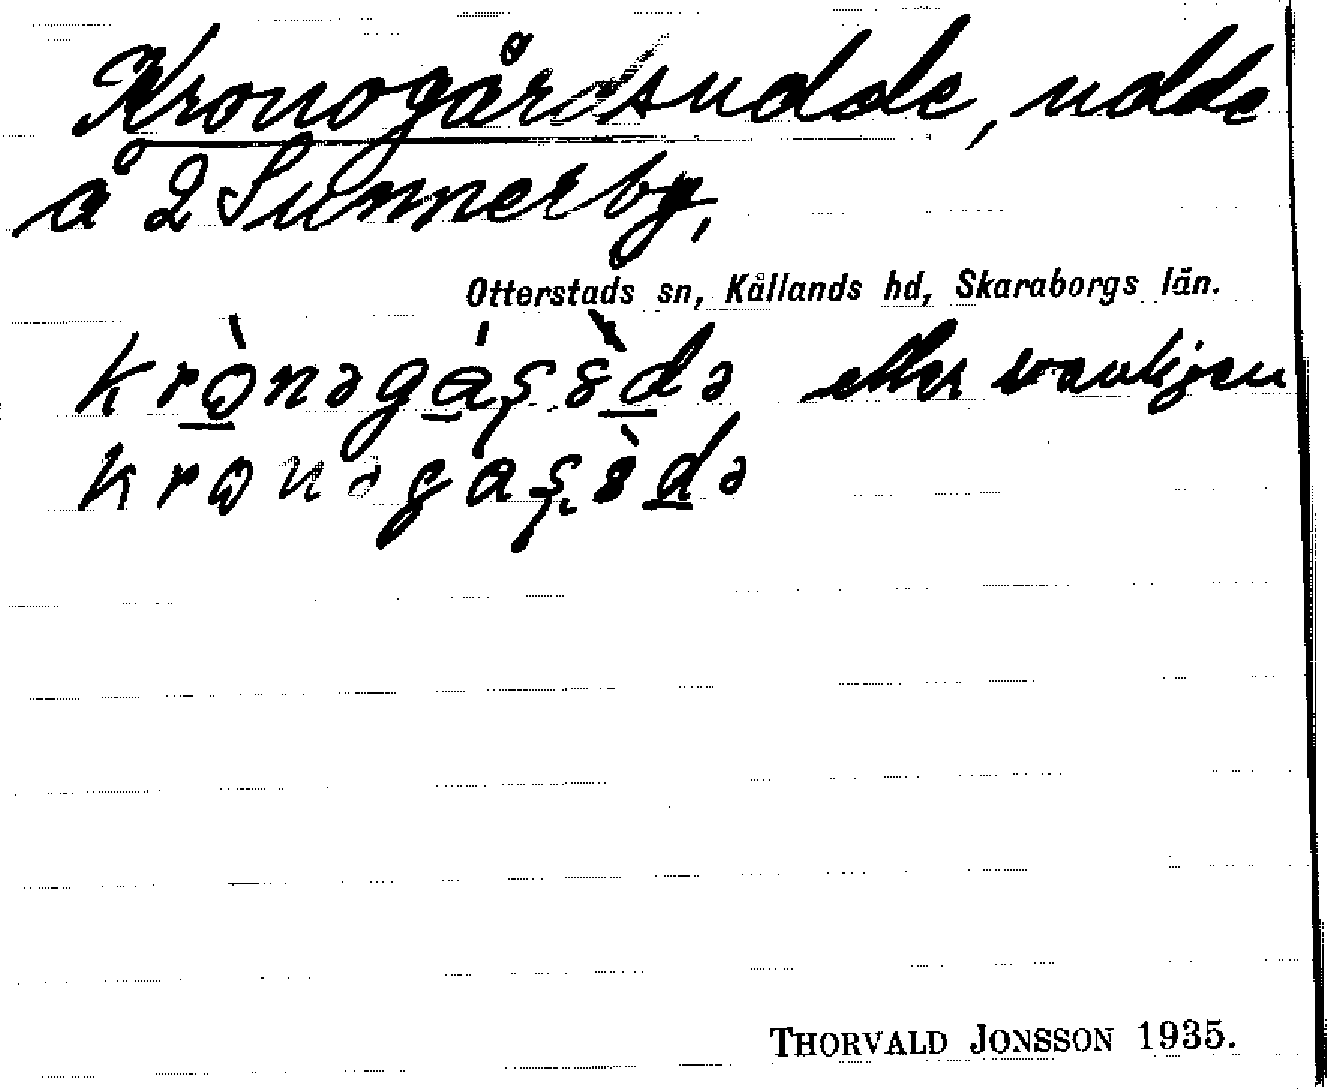 Kronogårdsudde, udde
å 2 Sunnerby,
Otterstads sn, Kållands hd, Skaraborgs län.
krònəgáşs̀də eller vanligen
kronəgaşs̀də
THORVALD JONSSON 1935.